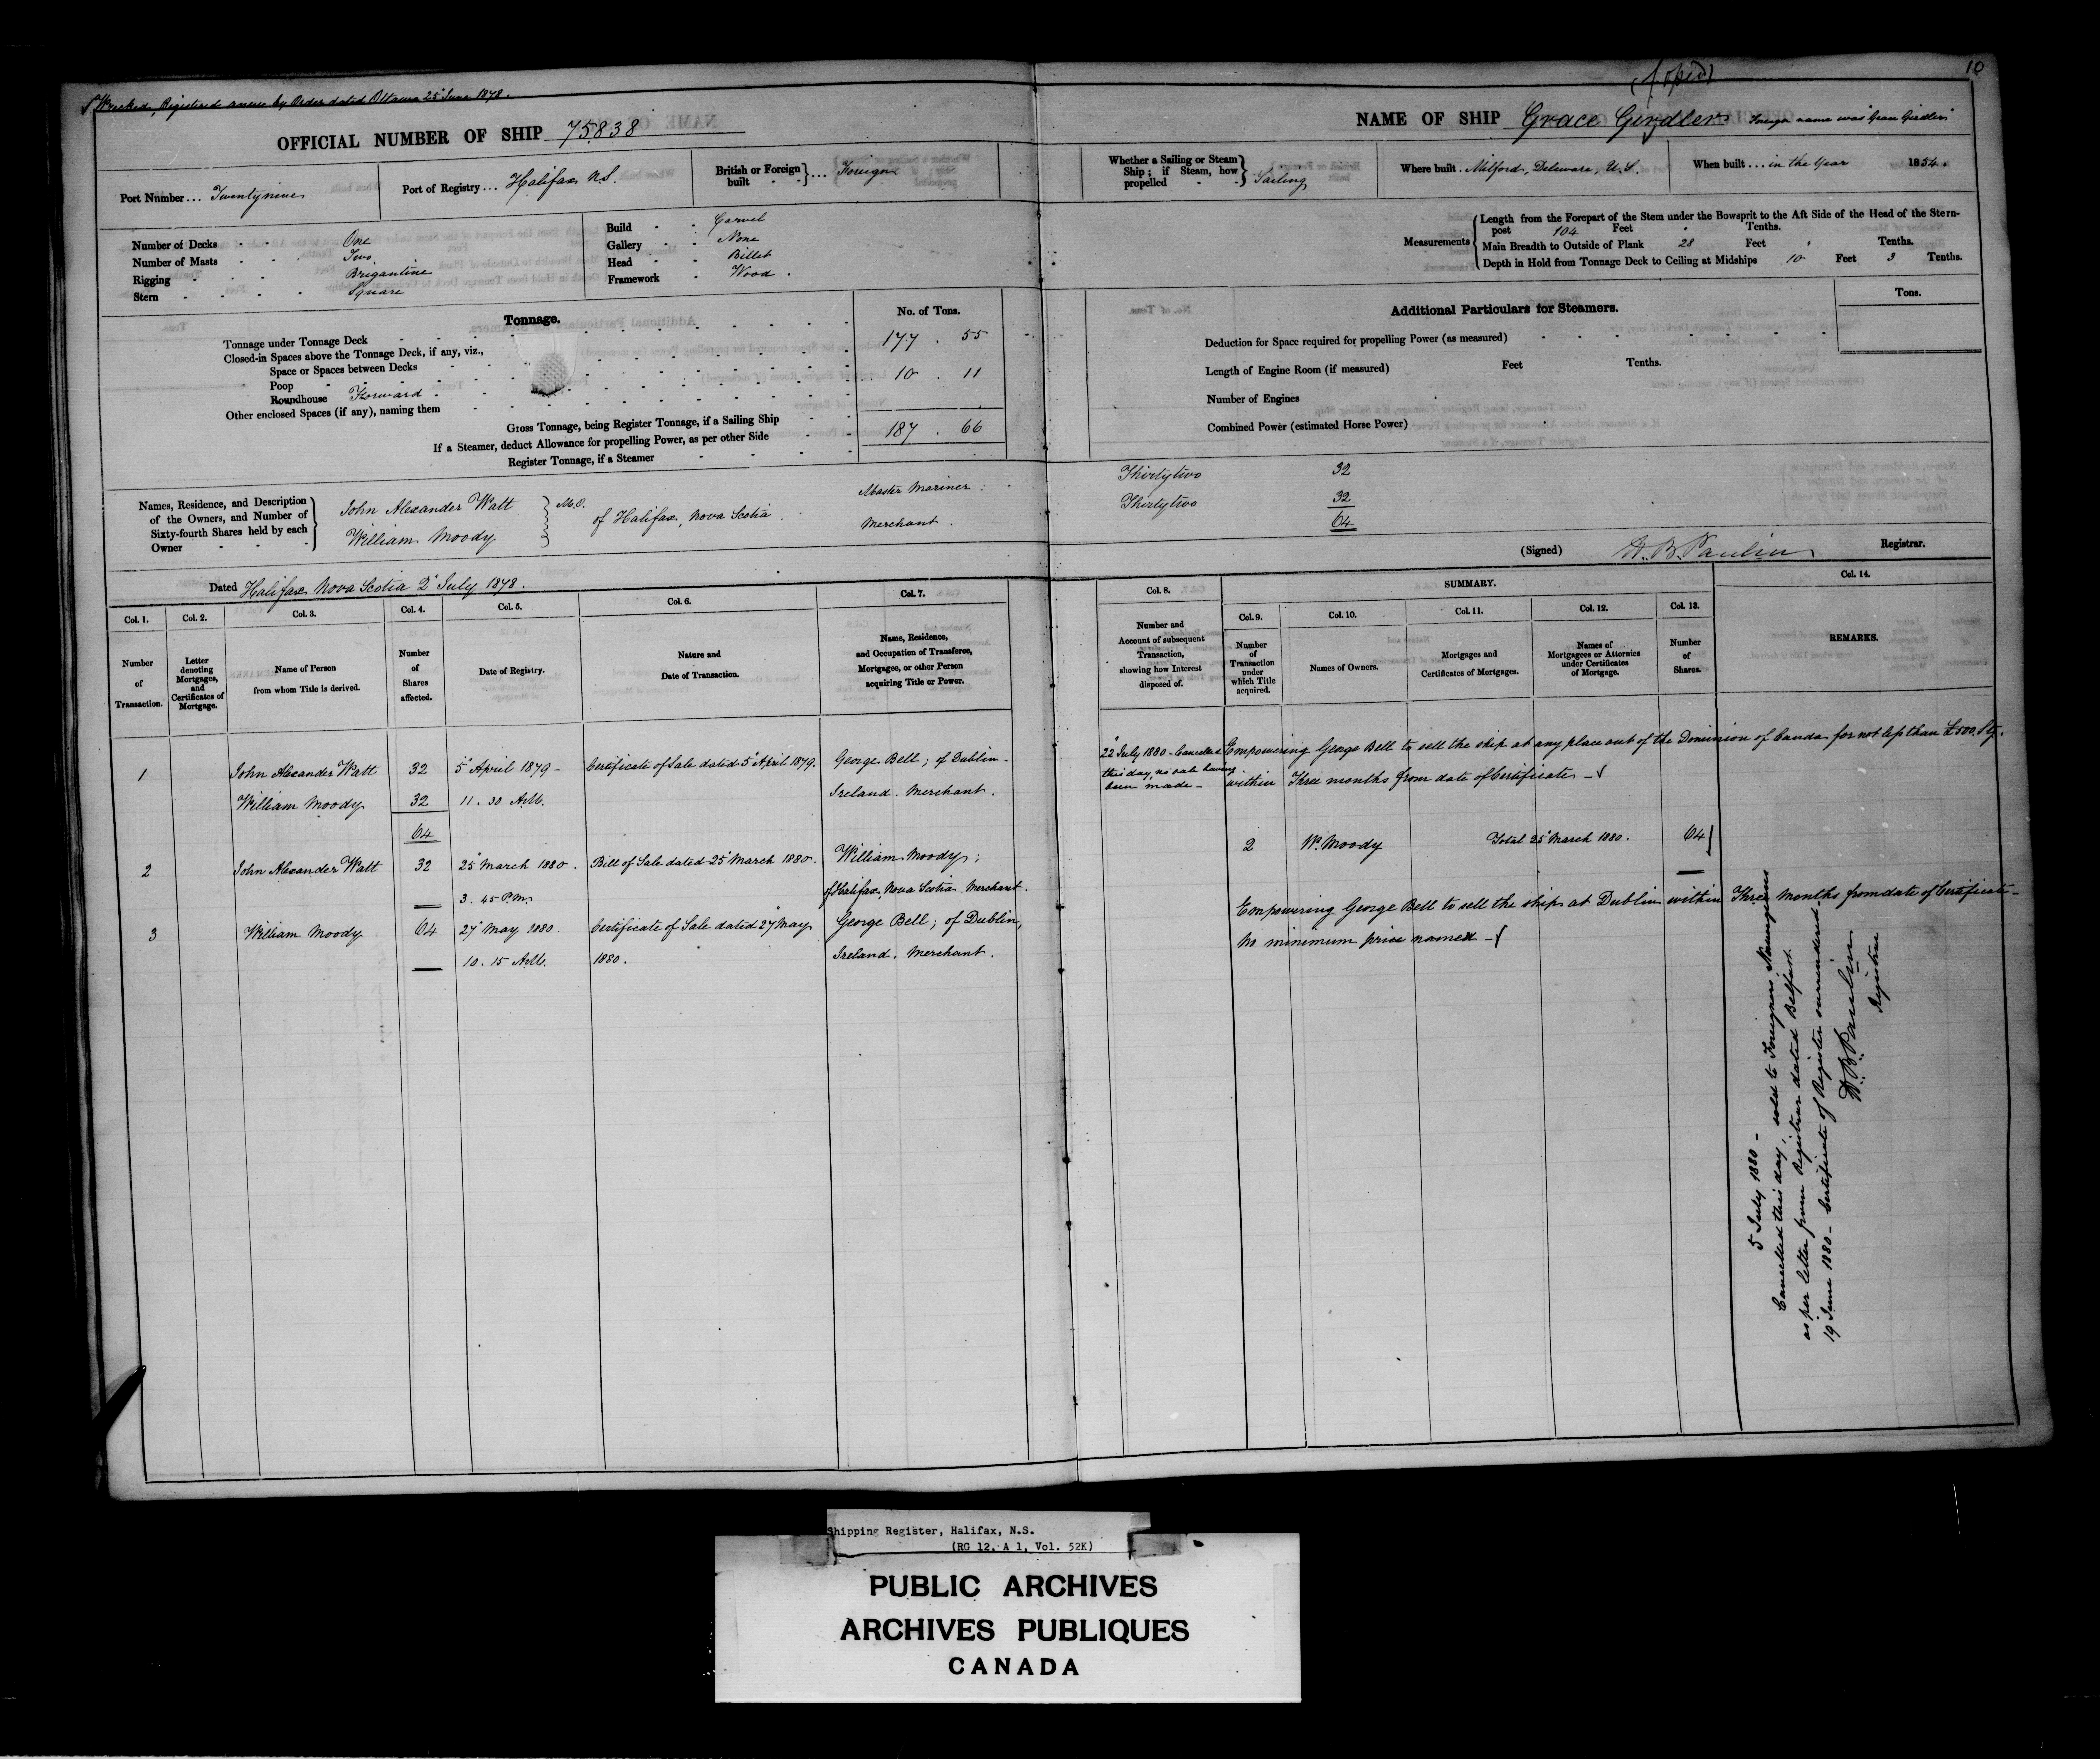 Wrecked, Registered anew by Order dated Ottawa 25 June 1878.
10
OFFICIAL NUMBER OF SHIP 75838
NAME OF SHIP Grace Girdler foreign name was Grace Girdler
Port Number ... Twentynine
Port of Registry ... Halifax N.S.
British or Foreign built ... Foreign
Whether a Sailing or Steam Ship; if Steam, how propelled Sailing
Where built . Milford, Delaware, U.S.
When built ... in the Year 1854.
Number of Decks One
Number of Masts Two
Rigging Brigantine
Stern Square
Build Carvel
Gallery None
Head Billet
Framework Wood
Measurements
Length from the Forepart of the Stem under the Bowsprit to the Aft Side of the Head of the Stern-
post 104 Feet Tenths.
Main Breadth to Outside of Plank 28 Feet Tenths.
Depth in Hold from Tonnage Deck to Ceiling at Midships 10 Feet 3 Tenths.
Tonnage.
No. of Tons.
Tonnage under Tonnage Deck 177 . 55
Closed-in Spaces above the Tonnage Deck, if any, viz.,
Space or Spaces between Decks
Poop
Roundhouse Forward 10 . 11
Other enclosed Spaces (if any), naming them
Gross Tonnage, being Register Tonnage, if a Sailing Ship 187 . 66
If a Steamer, deduct Allowance for propelling Power, as per other Side
Register Tonnage, if a Steamer
Additional Particulars for Steamers.
Tons.
Deduction for Space required for propelling Power (as measured)
Length of Engine Room (if measured) Feet Tenths.
Number of Engines
Combined Power (estimated Horse Power)
Names, Residence, and Description
of the Owners, and Number of
Sixty-fourth Shares held by each
Owner
John Alexander Watt Master Mariner Thirtytwo 32
of Halifax, Nova Scotia
William Moody Merchant . Thirtytwo 32
64
(Signed) H. B. Paulin Registrar.
Dated Halifax Nova Scotia 2 July 1878.
SUMMARY.
Col. 1. Number of Transaction.
Col. 2. Letter denoting Mortgages, and Certificates of Mortgage.
Col. 3. Name of Person from whom Title is derived.
Col. 4. Number of Shares affected.
Col. 5. Date of Registry.
Col. 6. Nature and Date of Transaction.
Col. 7. Name, Residence, and Occupation of Transferee, Mortgagee, or other Person acquiring Title or Power.
Col. 8. Number and Account of subsequent Transaction, showing how Interest disposed of.
Col. 9. Number of Transaction under which Title acquired.
Col. 10. Names of Owners.
Col. 11. Mortgages and Certificates of Mortgages.
Col. 12. Names of Mortgagees or Attornies under Certificates of Mortgage.
Col. 13. Number of Shares.
Col. 14. REMARKS.
1 John Alexander Watt 32 5 April 1879 - Certificate of Sale dated 5 April 1879. George Bell; of Dublin -
William Moody 32 11. 30 A.M. Ireland. Merchant.
64
22 July 1880 - Cancelled
this day, no sale having
been made -
Empowering George Bell to sell the ship at any place out of the Dominion of Canada for not less than £500 Stg.
within Three months from date of Certificate -
2 W. Moody Total 25 March 1880. 64
2 John Alexander Watt 32 25 March 1880. Bill of Sale dated 25 March 1880. William Moody;
3. 45 P.M. of Halifax, Nova Scotia. Merchant.
3 William Moody 64 27 May 1880. Certificate of Sale dated 27 May George Bell; of Dublin,
10. 15 A.M. 1880. Ireland. Merchant.
Empowering George Bell to sell the ship at Dublin within Three months from date of Certificate -
No minimum price named -
5 July 1880 -
Cancelled this day, sold to Foreigners
as per letter from Registrar dated Belfast
19 June 1880 - Certificate of Register surrendered
H. B. Paulin
Registrar
Shipping Register, Halifax, N.S.
(RG 12, A 1, Vol. 52K)
PUBLIC ARCHIVES
ARCHIVES PUBLIQUES
CANADA